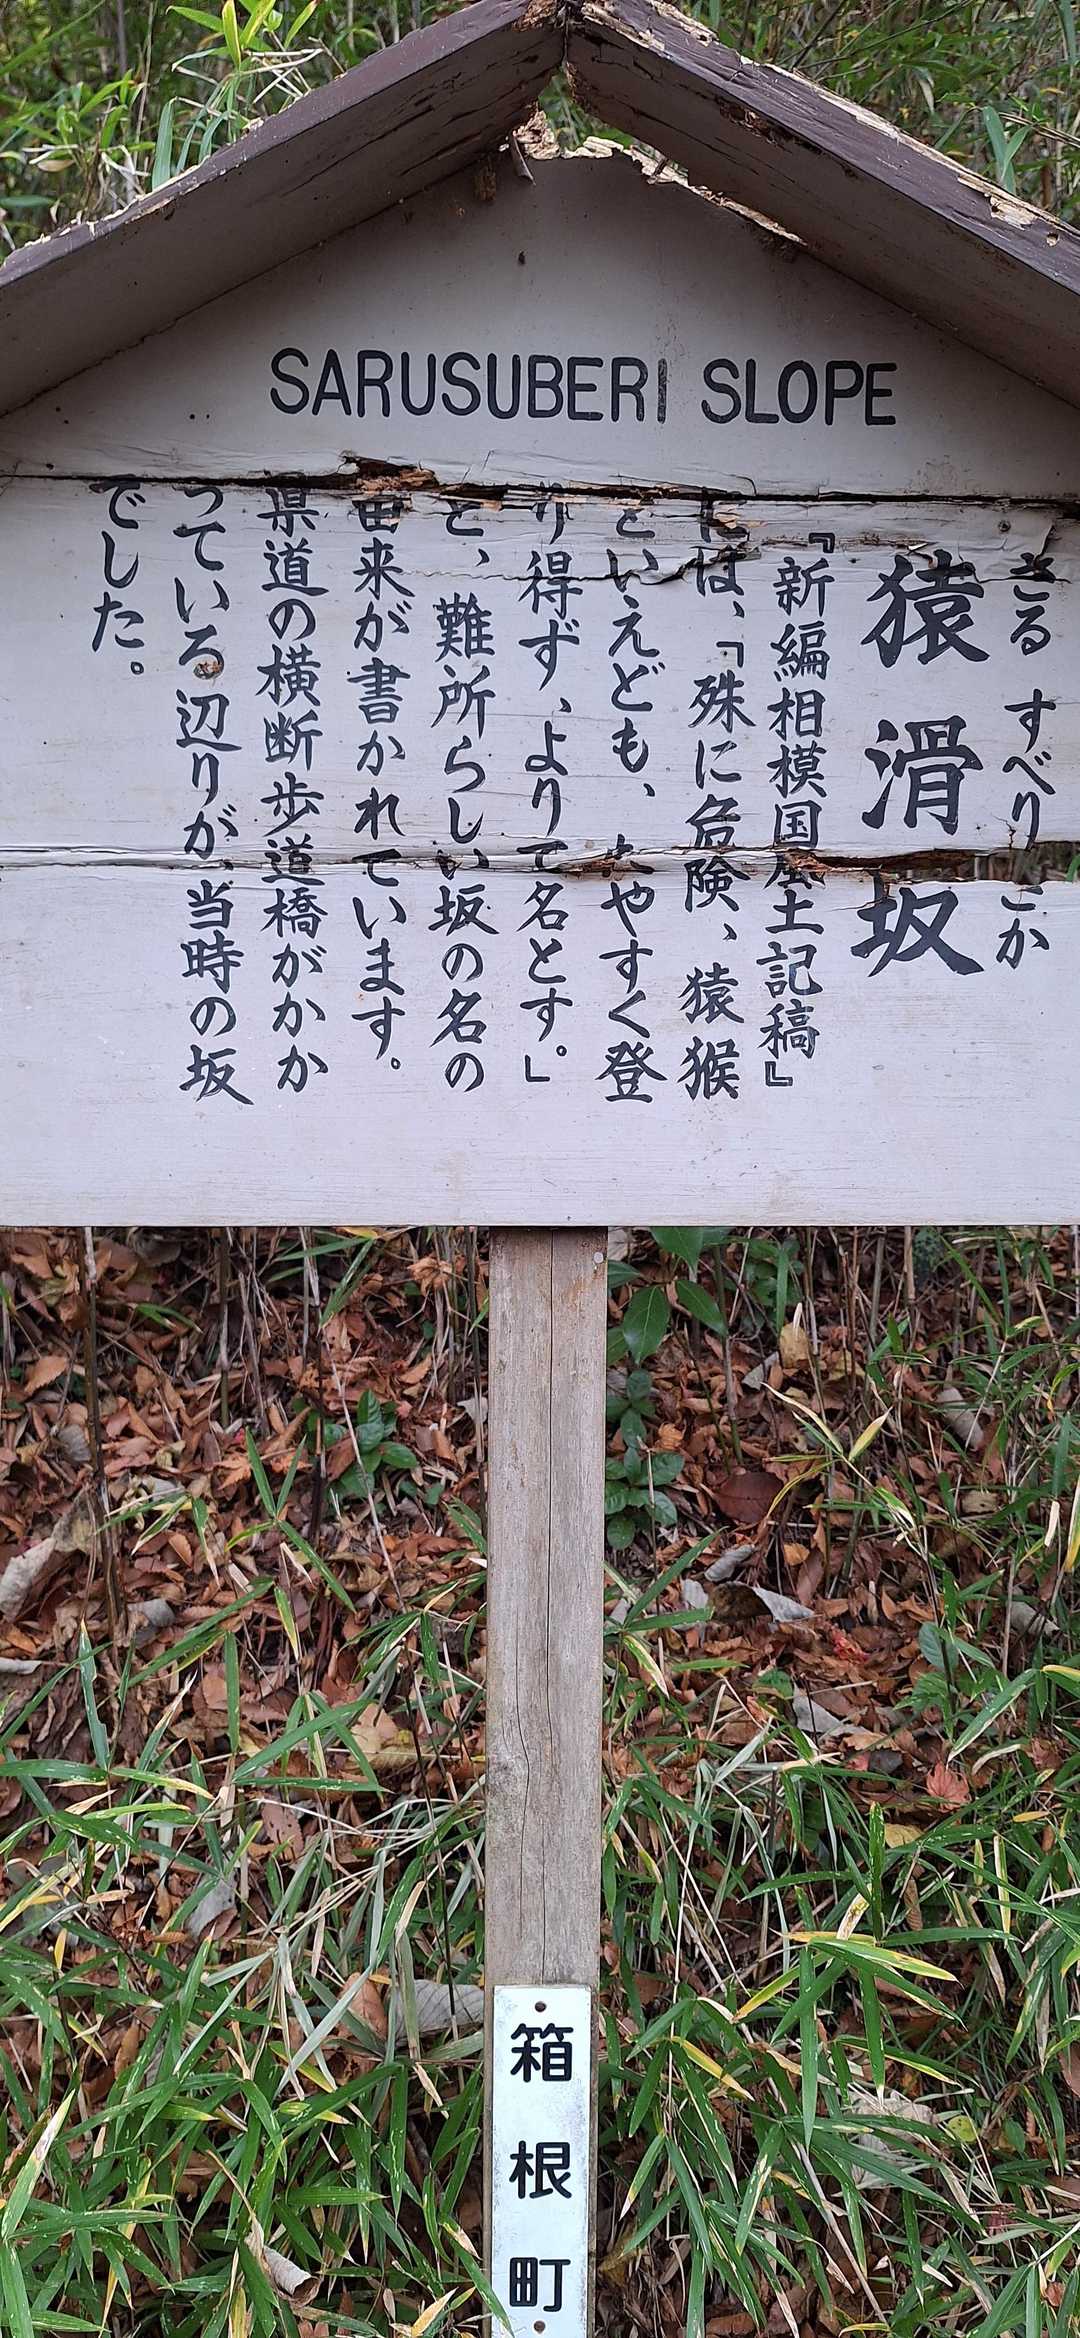 SARUSUBERI SLOPE
さる すべり ざか
猿滑坂
『新編相模国風土記稿』
には、「殊に危険、猿猴
といえども、たやすく登
り得ず、よりて名とす。」
と、難所らしい坂の名の
由来が書かれています。
県道の横断歩道橋がかか
っている辺りが、当時の坂
でした。
箱根町